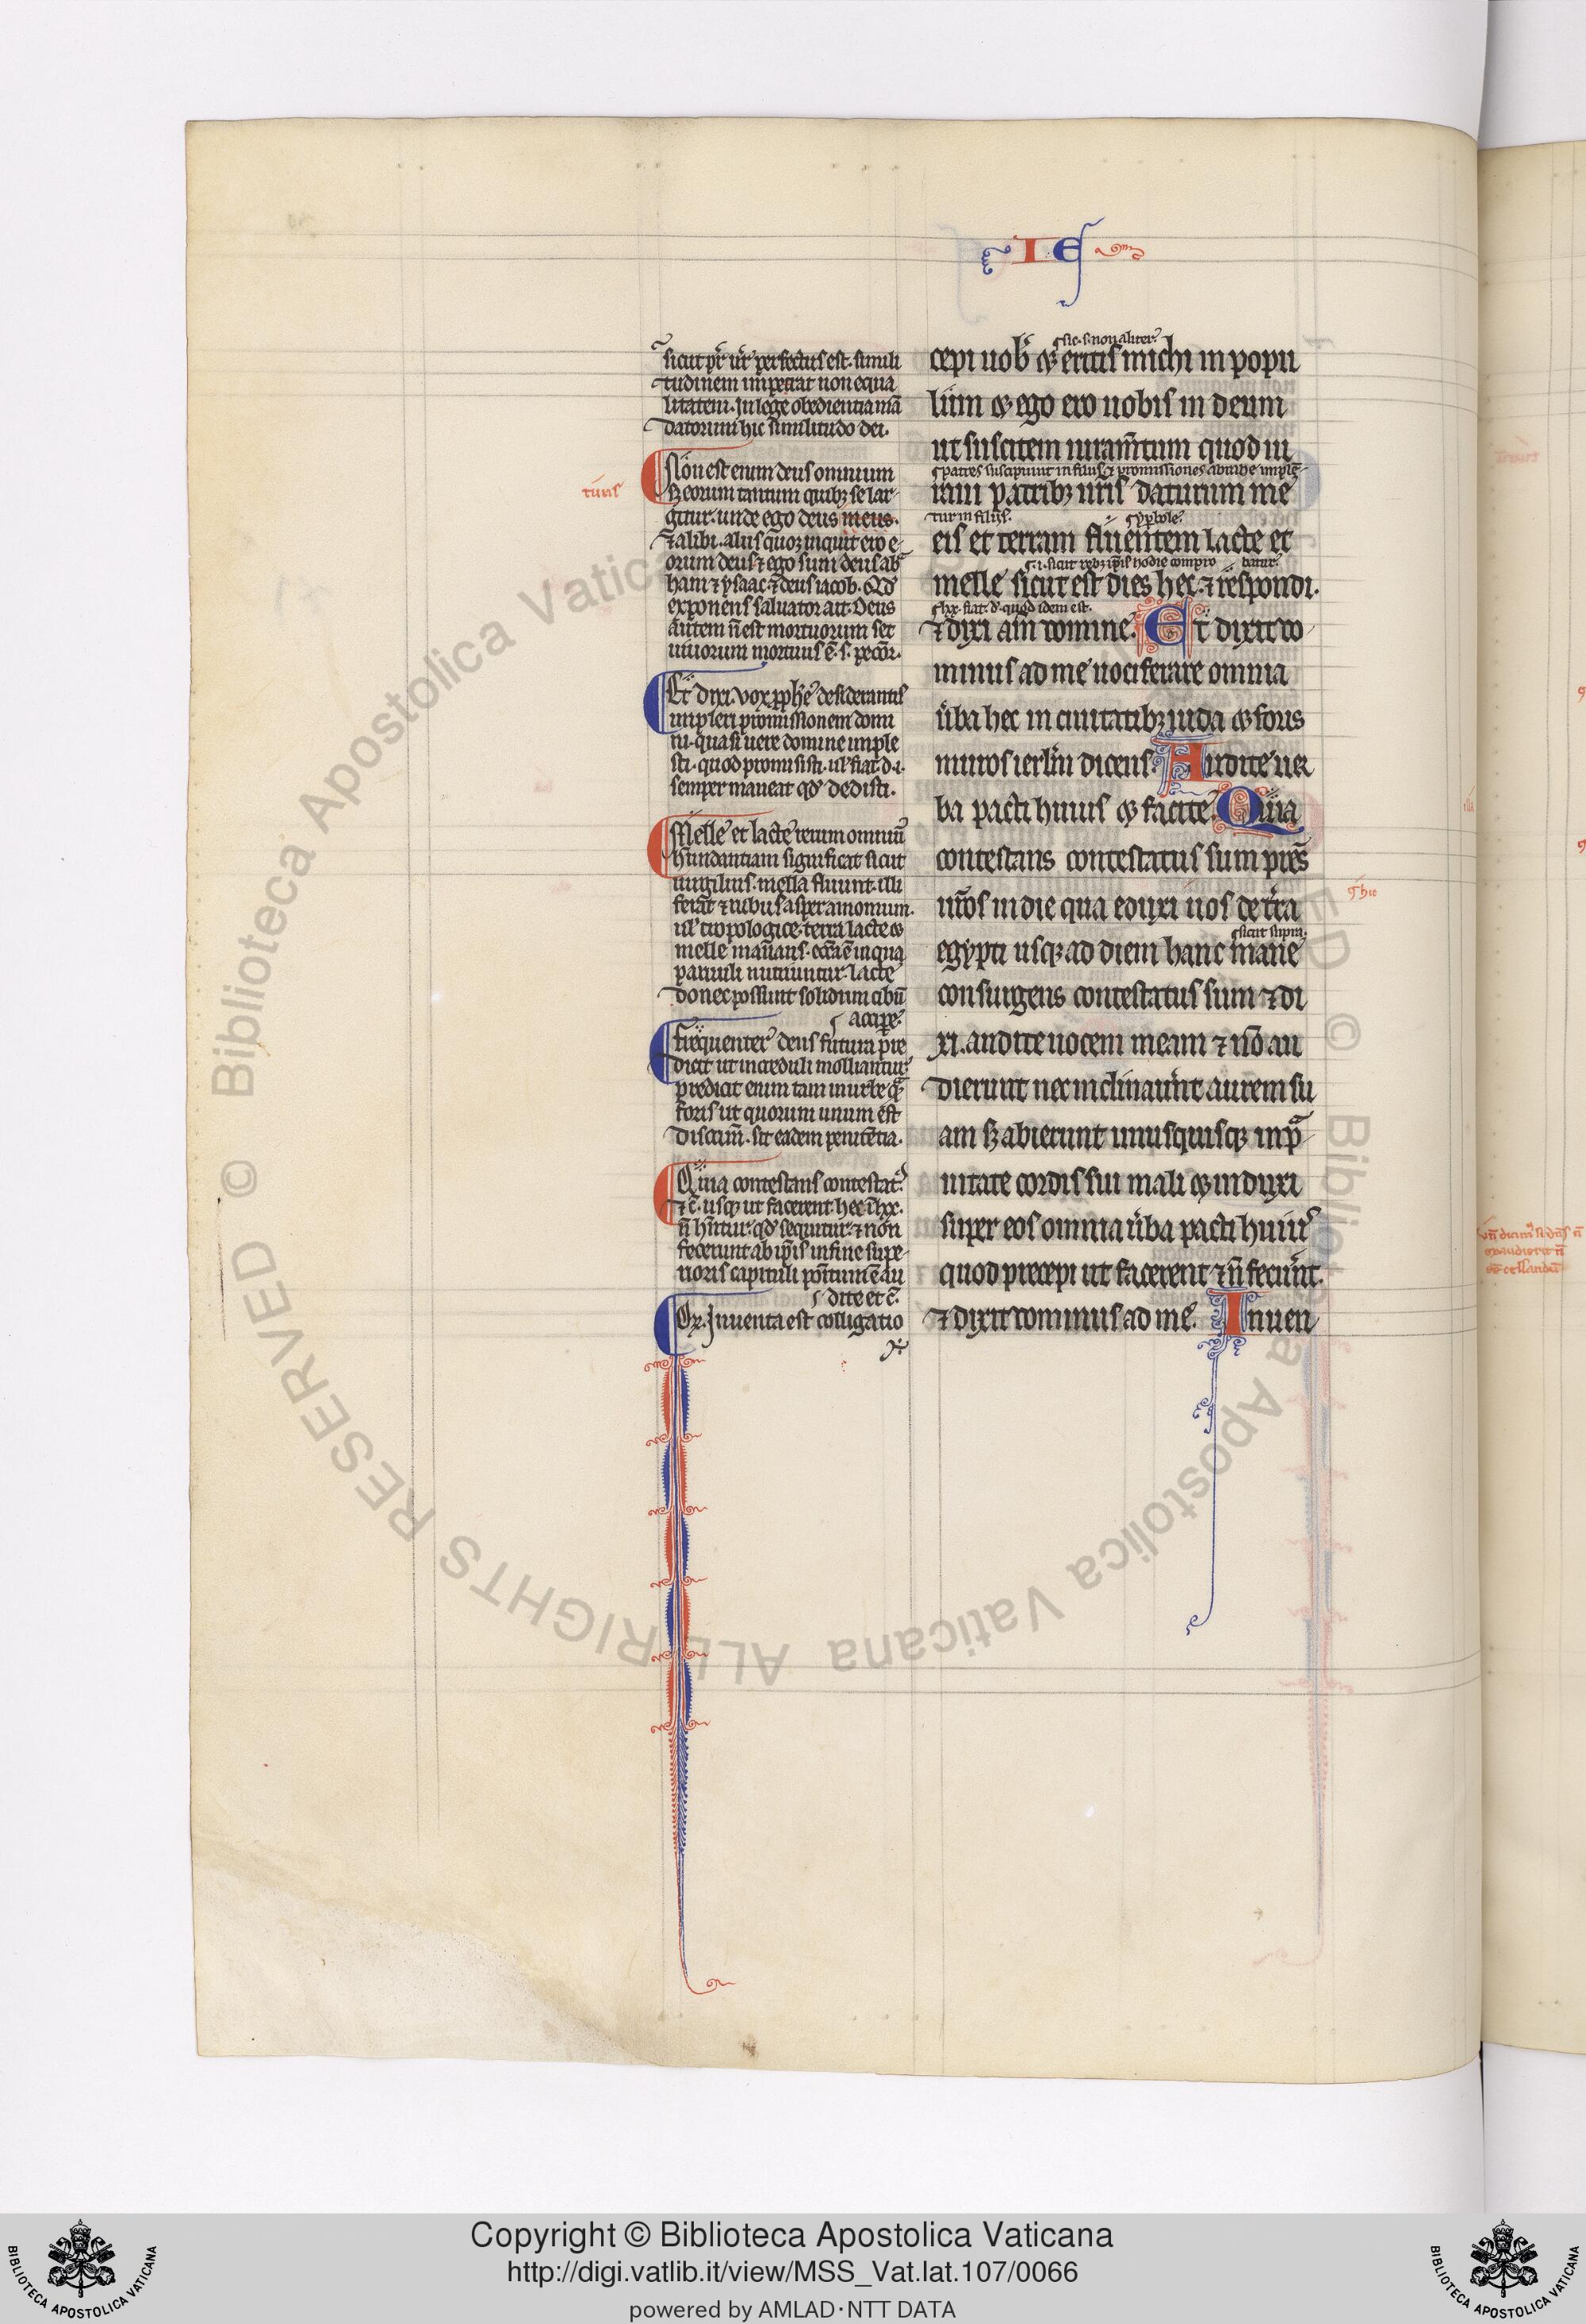 IE
sicut pr̄ ur̄ perfectus est. simili
tudinem imperat non equa
litatem. In lege obedientia mā
datorum hic similitudo dei.
Non est enim deus omnium
sꝫ eorum tantum quibꝫ se lar
gitur. unde ego deus meus.
tuus
⁊ alibi. aliis quoqꝫ inquit ero e
orum deus ⁊ ego sum deus ab
ham ⁊ ysaac. ⁊ deus iacob. Qd̄
exponens saluator ait. Deus
autem n̄ est mortuorum set
uiuorum mortuus ē. s. peccōr.
Et dixi. vox pphē desiderantis
impleri promissionem domi
ni. quasi uere domine imple
sti. quod promisisti. ul' fiat. d. i.
semper maneat qd̄ dedisti.
Melle et lacte rerum omniū
habundantiam significat sicut
uirgilius. mella fluunt illi
ferat ⁊ rubus asper amomum.
ul' tropologice. terra lacte ⁊
melle manans. ecc̄a ē in qua
paruuli nutriuntur lacte
donec possunt solidum cibū
accipe.
Frequenter deus futura pre
dicit ut increduli molliantur
predicit enim tam in urbe qꝫ
foris ut quorum unum est
discrim̄. sit eadem penitentia.
Quia contestans contestat.
⁊ c̄. usqꝫ ut facerent. hec i lxx.
n̄ hn̄tur. qd̄ sequitur. ⁊ non
fecerunt ab ip̄is in fine supe
rioris capituli pōitum ē au
dite et c̄.
Ex. Inuenta est colligatio
sic. s. non aliter.
cepi uob̄ ⁊ eritis michi in popu
lum ⁊ ego ero uobis in deum
ut suscitem iuram̄tum quod iu
patres suscipiunt in filiis ⁊ promissiones abrahe imple
raui patribꝫ ur̄is daturum me
tur in filiis. yperbole.
eis et terram fluentem lacte et
s. i. sicut rebꝫ ip̄is hodie compro batur.
melle sicut est dies hec. ⁊ respondi.
lxx. fiat. d. quod idem est.
⁊ dixi am̄ domine. Et dixit do
minus ad me uociferare omnia
ūba hec in ciuitatibꝫ iuda ⁊ foris
muros ierlm̄ dicens. Audite uer
ba pacti huius ⁊ facite. Quia
contestans contestatus sum pr̄es
ur̄os in die qua eduxi uos de tr̄ra
hic
sicut supra.
egypti usqꝫ ad diem hanc mane
consurgens contestatus sum ⁊ di
xi. audite uocem meam ⁊ nō au
dierunt nec inclinauūt aurem su
am sꝫ abierunt unusquisqꝫ in p̄
uitate cordis sui mali ⁊ induxi
super eos omnia ūba pacti huius
quod precepi ut facerent ⁊ n̄ fecūnt.
⁊ dixit dominus ad me. Inuen
Copyright © Biblioteca Apostolica Vaticana
http://digi.vatlib.it/view/MSS_Vat.lat.107/0066
powered by AMLAD·NTT DATA
BIBLIOTECA APOSTOLICA VATICANA
BIBLIOTECA APOSTOLICA VATICANA
© Biblioteca Apostolica Vaticana ALL RIGHTS RESERVED